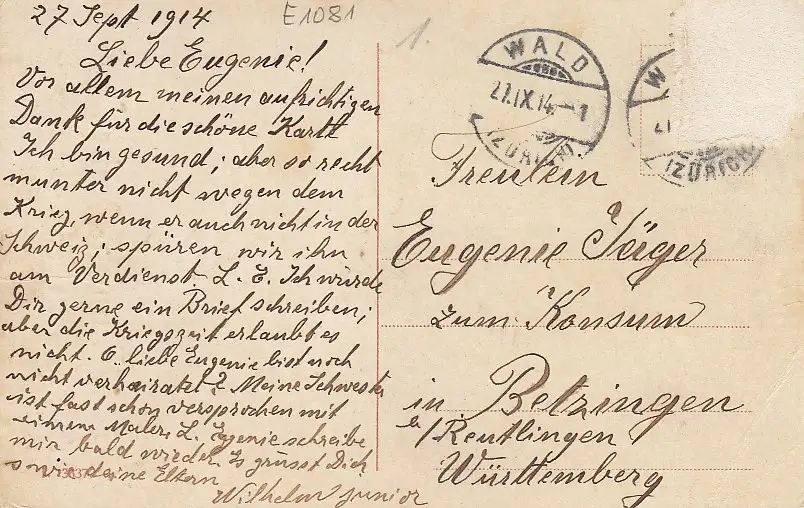 27 Sept 1914
E1081
1.
Liebe Eugenie!
Vor allem meinen aufrichtigen
Dank für die schöne Kartt
Ich bin gesund; aber so recht
munter nicht wegen dem
Krieg, wenn er auch nicht in der
Schweiz; spüren wir ihn
am Verdienst. L. E. Ich würde
Dir gerne ein Brief schreiben;
aber die Kriegszeit erlaubt es
nicht. O. liebe Eugenie bist noch
nicht verheiratet? Meine Schwester
ist fast schon versprochen mit
einem Maler. L. Eugenie schreibe
mir bald wieder. Es grüsst Dich
sowie deine Eltern
Wilhelm junior
WALD
27.IX.14.–1
(ZÜRICH)
W
(ZÜRICH)
Freulein
Eugenie Jäger
zum Konsum
in Betzingen
b/Reutlingen
Württemberg